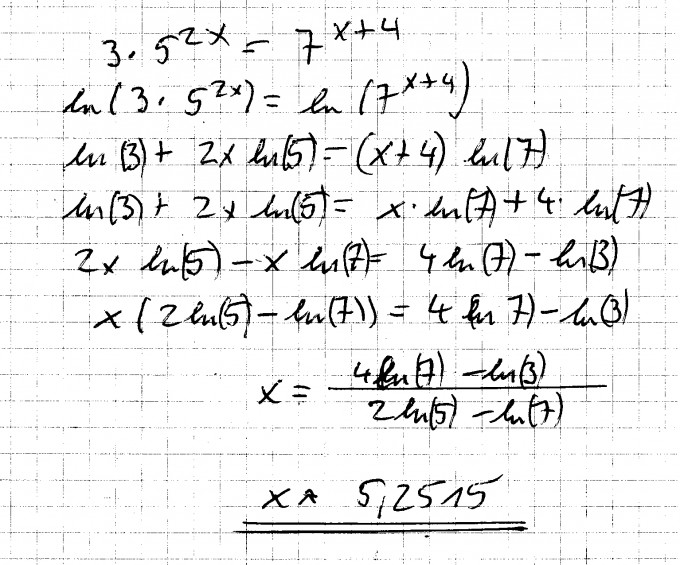 3 · 5^{2x} = 7^{x+4}
ln(3 · 5^{2x}) = ln(7^{x+4})
ln(3) + 2x ln(5) = (x+4) ln(7)
ln(3) + 2x ln(5) = x · ln(7) + 4 · ln(7)
2x ln(5) - x ln(7) = 4 ln(7) - ln(3)
x(2ln(5) - ln(7)) = 4(ln 7) - ln(3)
x = \frac{4ln(7) - ln(3)}{2ln(5) - ln(7)}
x ≈ 5,2515